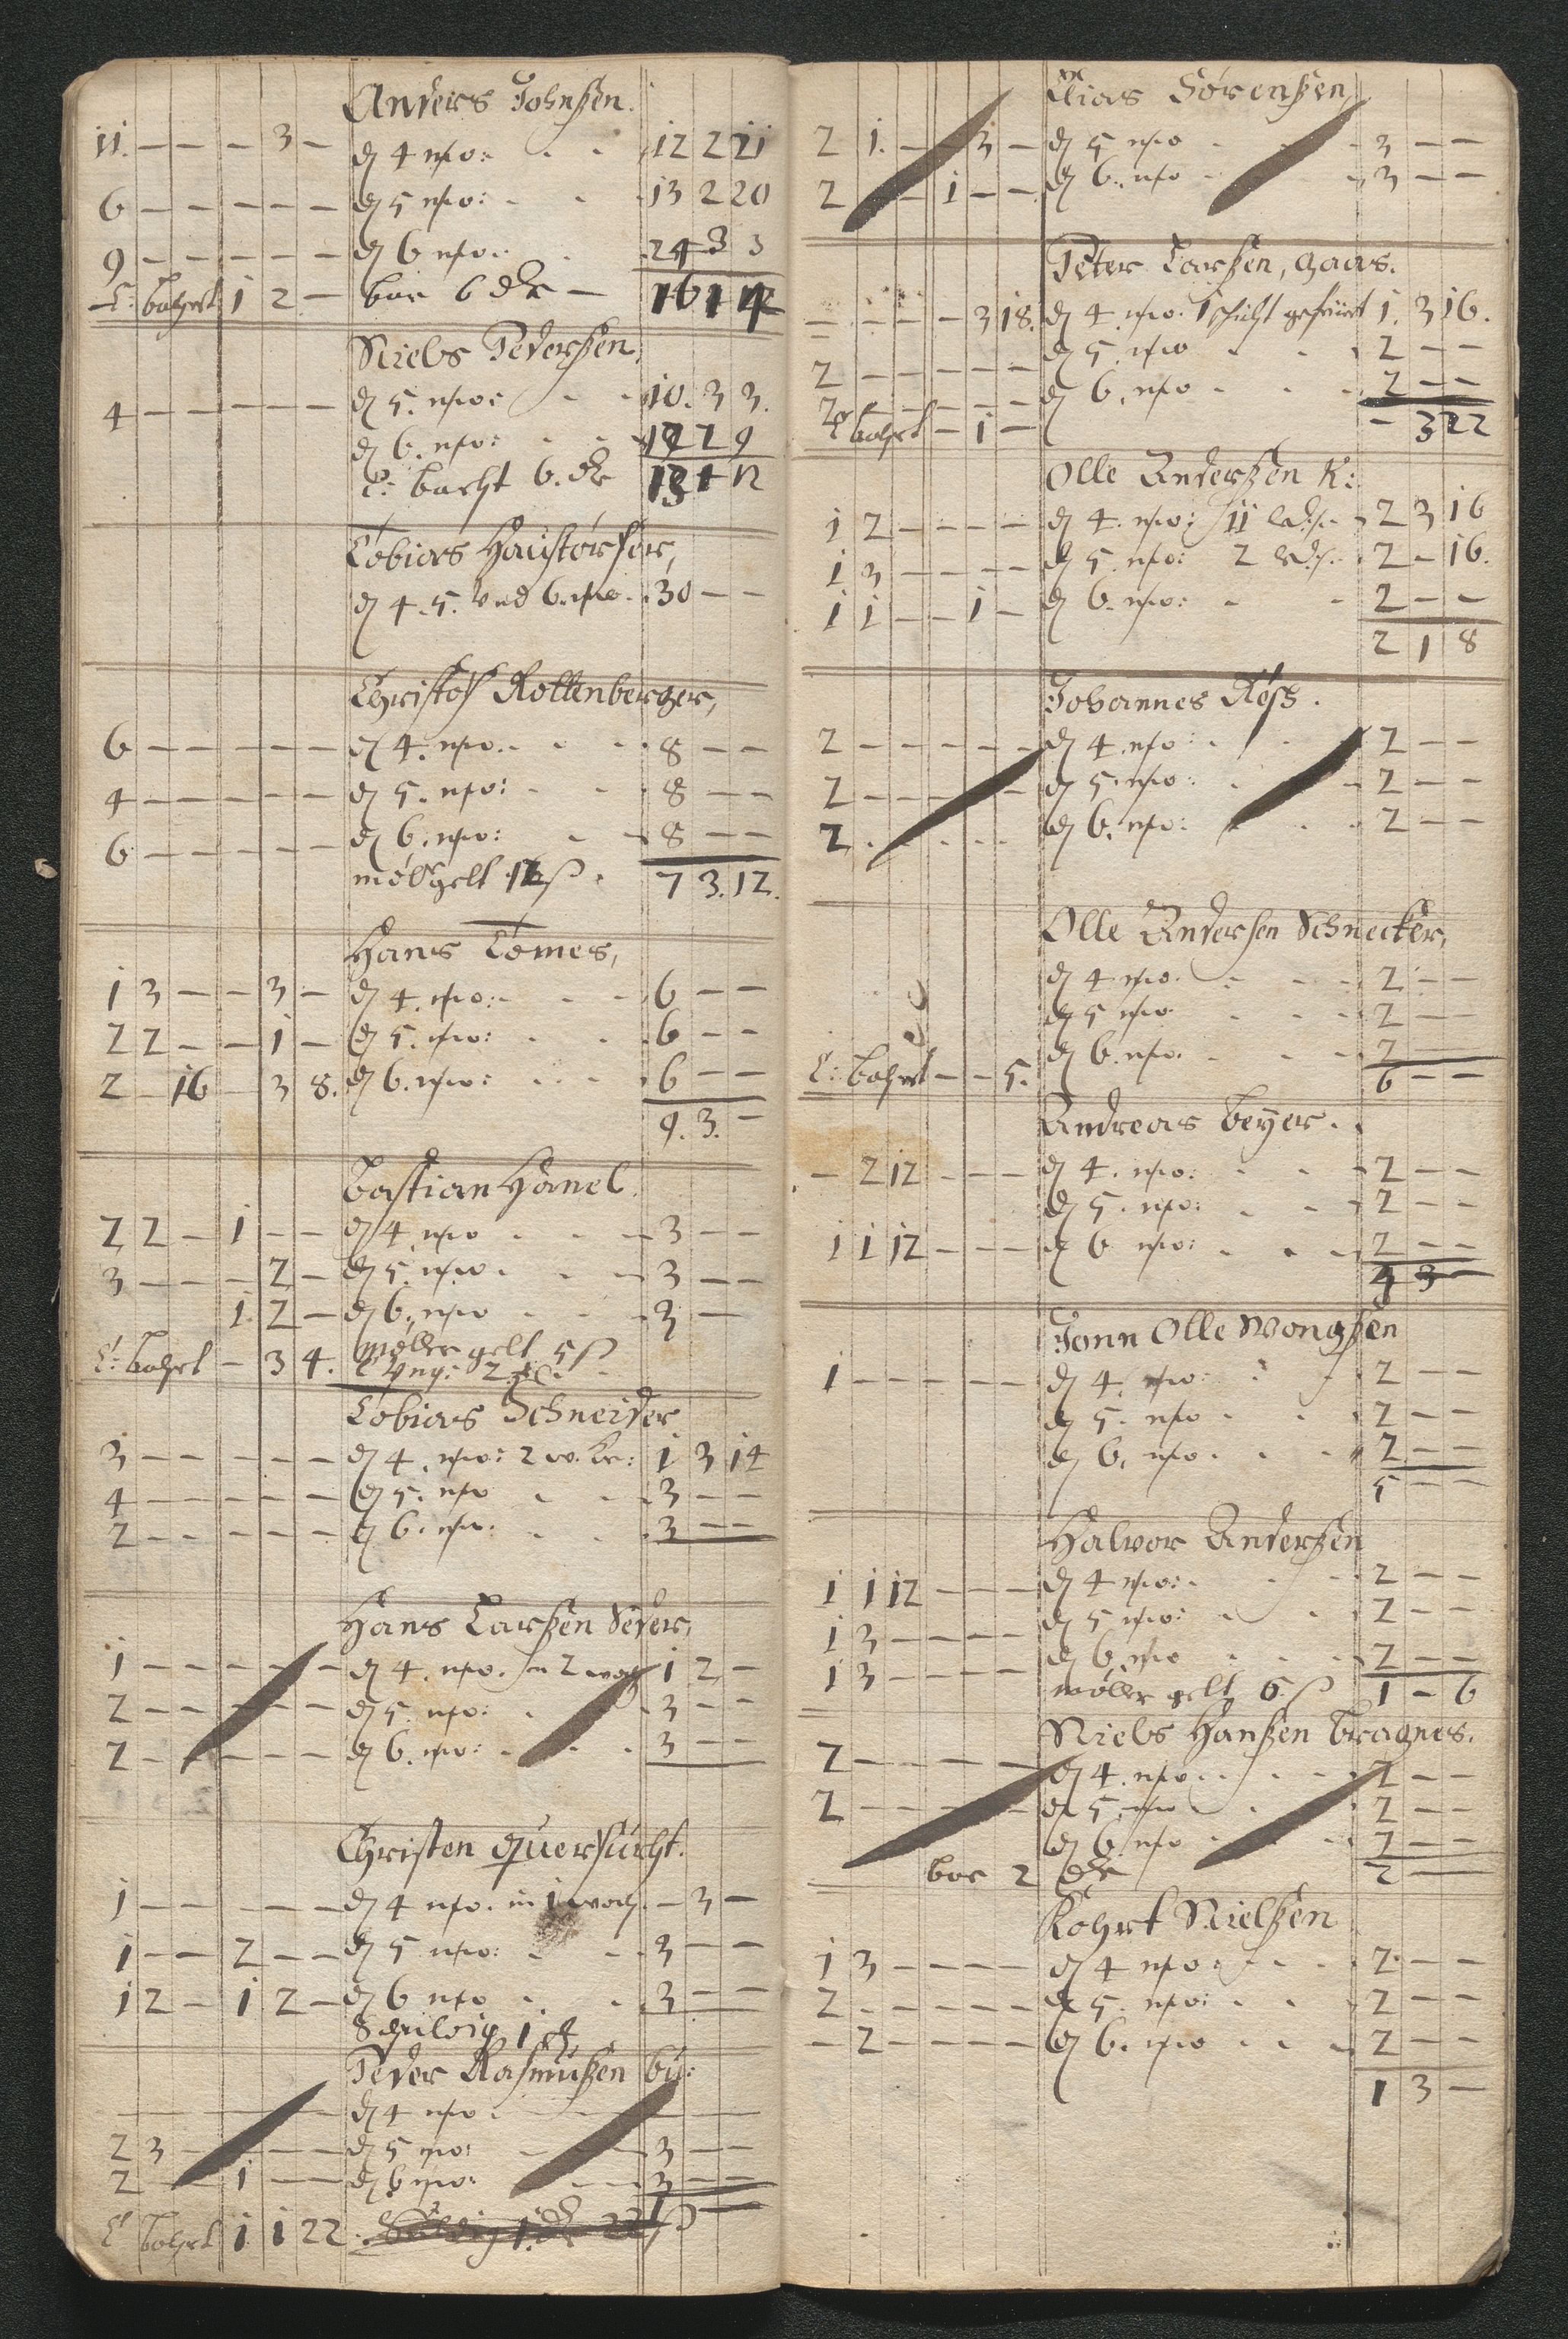 Anders Johnßen.
11. — — — 3 — d 4 mo: 12 2 21
6 — — — — — d 5 mo: 13 2 20
9 — — — — — d 6 mo: 24 3 3
E: bahrt 1 2 — bar 6 dr —
Niels Pederßen,
4 — — — — — d 5. mo: 10. 3 3.
d 6. mo:
E: barht 6. dr
Tobias Haustörfer,
d 4. 5. Und 6. mo. 30 — —
Christof Rottenberger,
6 — — — — — d 4. mo. 8 — —
4 — — — — — d 5. mo: 8 — —
6 — — — — — d 6. mo: 8 — —
7 3. 12.
Hans Tomes,
1 3 — — 3 — d 4. mo: 6 — —
2 2 — — 1 — d 5. mo: 6 — —
2 — 16 — 3 8. d 6. mo: 6 — —
9. 3. —
Bastian Hänel.
2 2 — 1 — — d 4 mo 3 — —
3 — — — 2 — d 5. mo. 3 — —
1 2 — d 6. mo 3 —
E: bahrt — 3 4. möller gelt 5 ß
Tobias Schneider
3 — — — — — d 4. mo: 2 w. 1 3 14
4 — — — — — d 5. mo 3 — —
2 — — — — — d 6. mo: 3 — —
Hans Larßen Seder,
1 — — — — — d 4. mo. in 2 woch 1 2 —
2 — — — — — d 5. mo: 3 — —
2 — — — — — d 6. mo: 3 — —
Christen Quersücht.
1 — — — — — d 4 mo. in 1 woch. — 3 —
1 — — 2 — — d 5 mo: 3 — —
1 2 — 1 2 — d 6 mo 3 — —
Schuldig 1
Peder Rasmußen bü:
d 4 mo.
2 3 — — — — d 5 mo: 3 — —
2 — — 1 — — d 6 mo: 3 — —
E bahrt 1 1 22.
Elias Sörenßen
2 1. — — 3 — d 5 mo 3 — —
2 — — 1 — — d 6. mo 3 — —
Peter Larßen, Gaas.
— — — — 3 18. d 4. mo. 1 schicht gefeiert 1. 3 16.
2 — — — — — d 5. mo 2 — —
2 — — — — — d 6. mo 2 — —
E bahrt — 1 — — 3 22
Olle Anderßen K:
1 2 — — — — d 4. mo: 11 2 3 16
1 3 — — — — d 5. mo: 2 2 — 16.
1 1 — — 1 — d 6. mo: 2 — —
2 1 8
Johannes Röß.
2 — — — — — d 4. mo: 2 — —
2 — — — — — d 5. mo: 2 — —
2. — — — — — d 6. mo: 2 — —
Olle Andersen Schnecker,
d 4 mo. 2 — —
d 5 mo 2 — —
d 6. mo. 2 — —
E: bahrt — — 5. 6 — —
Andreas Beyer.
— 2 12 — — — d 4. mo: 2 — —
d 5. mo: 2 — —
1 1 12 — — — d 6 mo: 2 — —
4 3 —
Jonn Olle Wongßen
1 — — — — — d 4. mo: 2 — —
d 5. mo 2 — —
d 6. mo. 2 — —
5 — —
Halvor Anderßen
1 1 12 — — — d 4 mo: 2 — —
1 3 — — — — d 5 mo: 2 — —
1 3 — — — — d 6 mo 2 — —
möller gelt 6 ß 1 — 6
Niels Hanßen Bragnes.
2 — — — — — d 4. mo. 2 — —
2 — — — — — d 5. mo 2 — —
d 6 mo 2 — —
bar 2 dr 2 — —
Kohrt Nielßen
1 3 — — — — d 4 mo: 2. — —
2 — — — — — d 5. mo: 2 — —
— 2 — — — — d 6. mo 2 — —
1 3 —